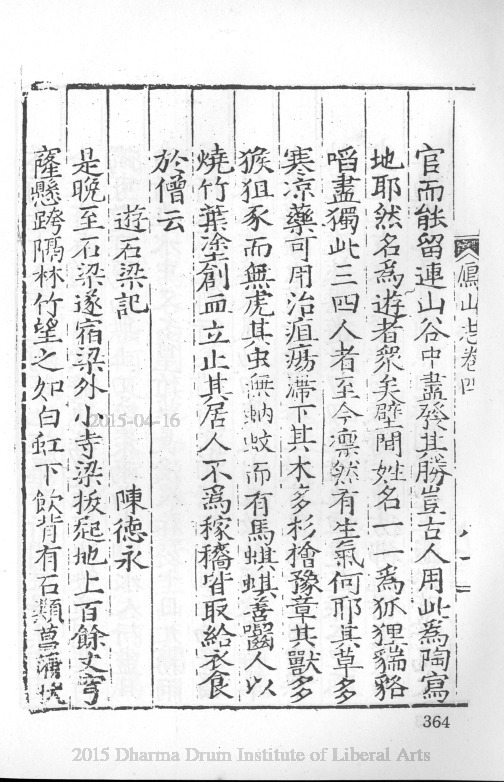 官而能留連山谷中盡發其勝豈古人用此為陶寫
地耶然名為遊者眾矣壁間姓名一一為狐狸貒貉
㗖盡獨此三四人者至今凛然有生氣何耶其草多
寒凉藥可用治疽瘍滯下其木多杉檜豫章其獸多
猴狙豕而無虎其虫無蚋蚊而有馬蜞蜞善囓人以
燒竹葉塗創血立止其居人不為稼穡皆取給衣食
於僧云
遊石梁記
陳德永
是晚至石梁遂宿梁外小寺梁拔起地上百餘丈穹
窿懸跨隅林竹望之如白虹下飲背有石類菖蒲
山志卷四
364
2015-04-16
2015 Dharma Drum Institute of Liberal Arts